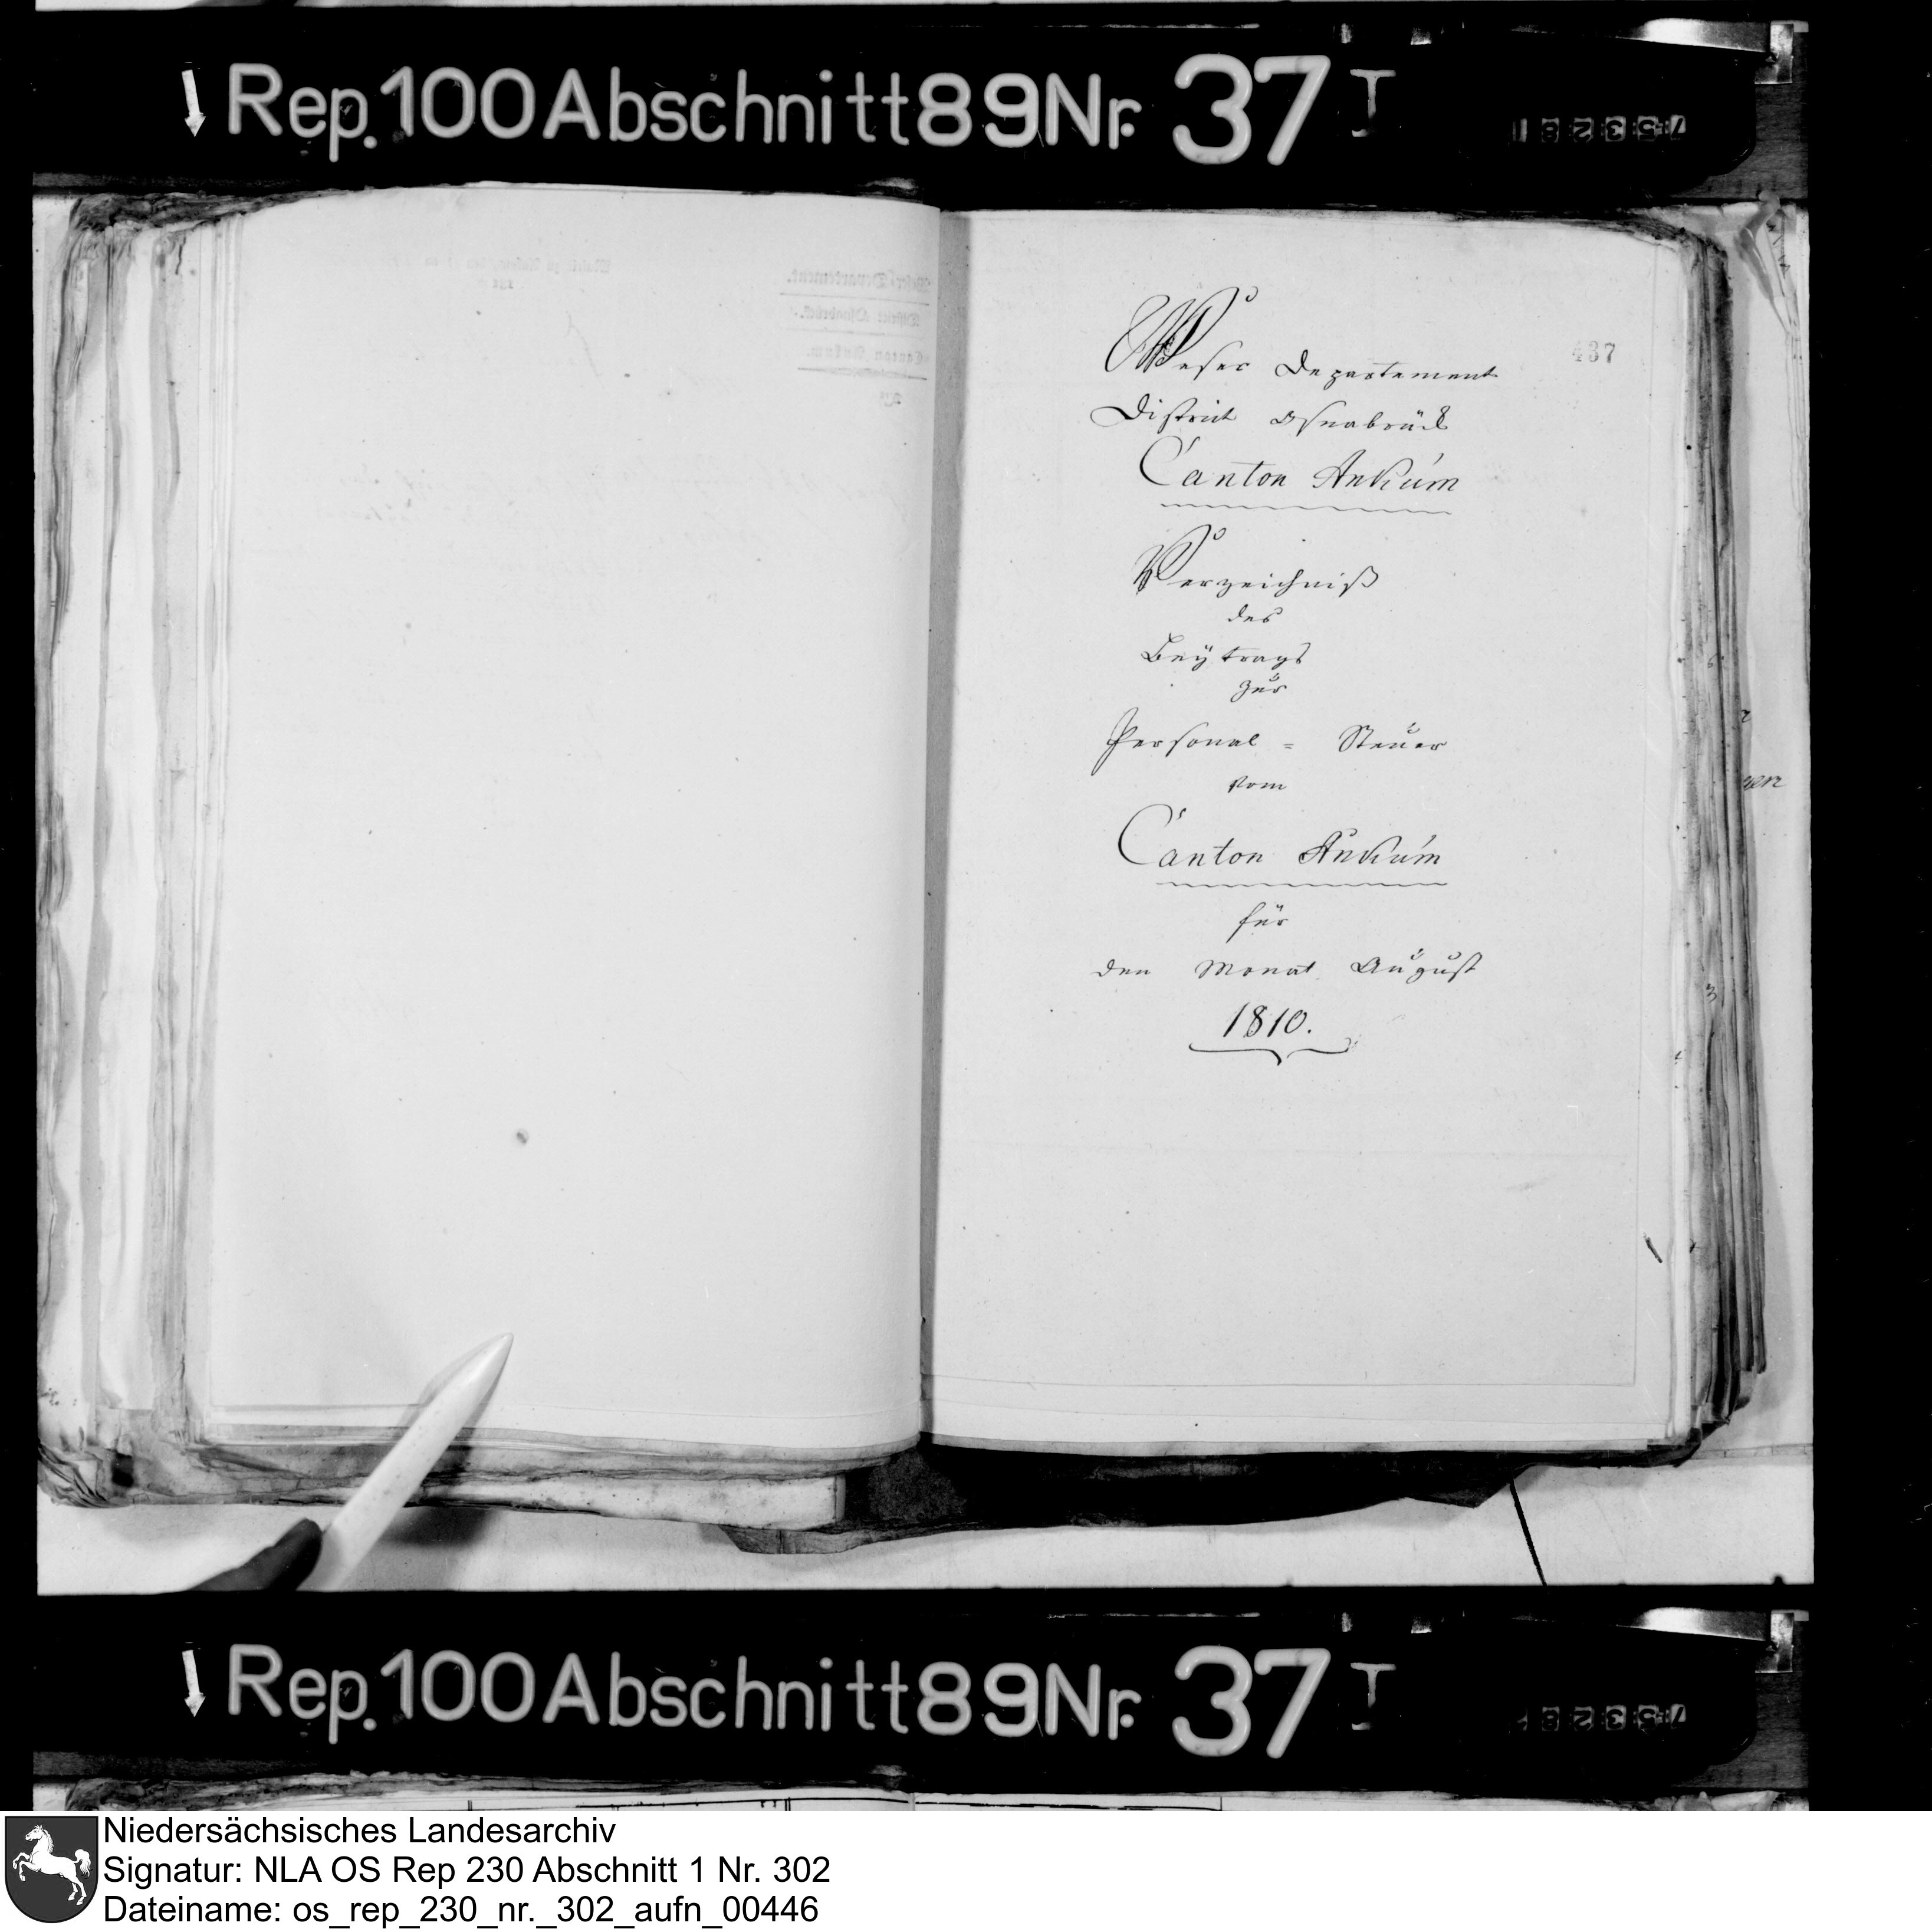 Rep. 100 Abschnitt 89 Nr. 37 I
437
Weser Departement
District Osnabrück
Canton Ankum
Verzeichniß
des
Beÿtrags
zur
Personal = Steuer
vom
Canton Ankum
für
den Monat August
1810.
Weser-Departement.
District Osnabrück.
Canton Ankum.
Rep. 100 Abschnitt 89 Nr. 37 I
Niedersächsisches Landesarchiv
Signatur: NLA OS Rep 230 Abschnitt 1 Nr. 302
Dateiname: os_rep_230_nr._302_aufn_00446